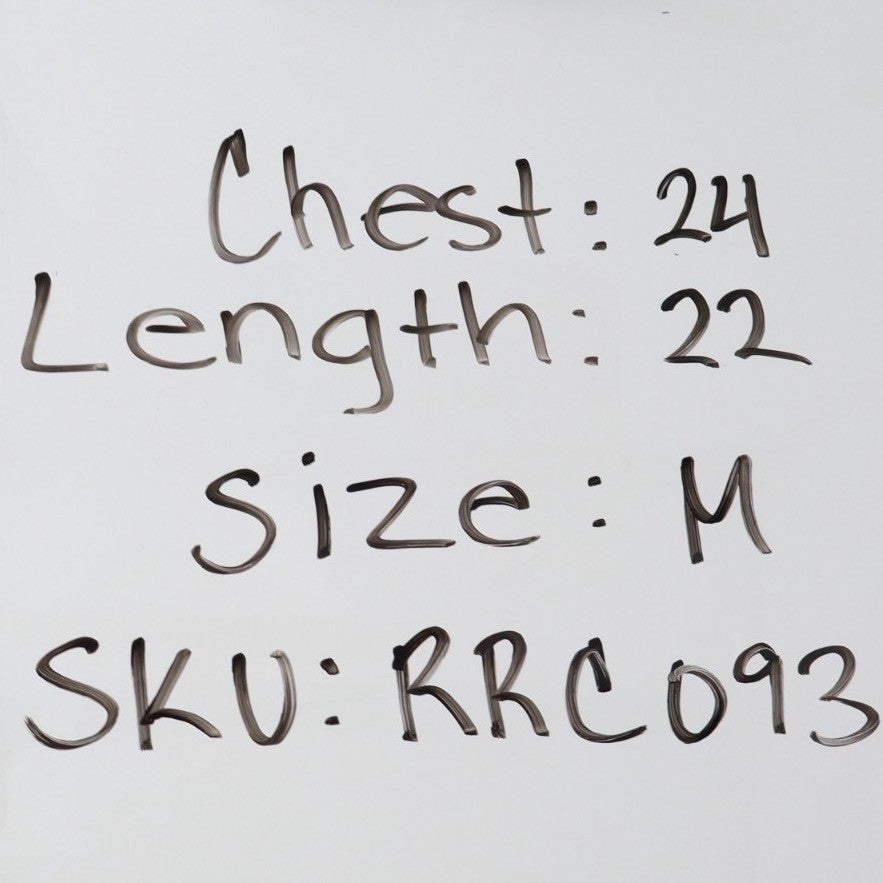 Chest: 24
Length: 22
Size: M
SKU: RRC093